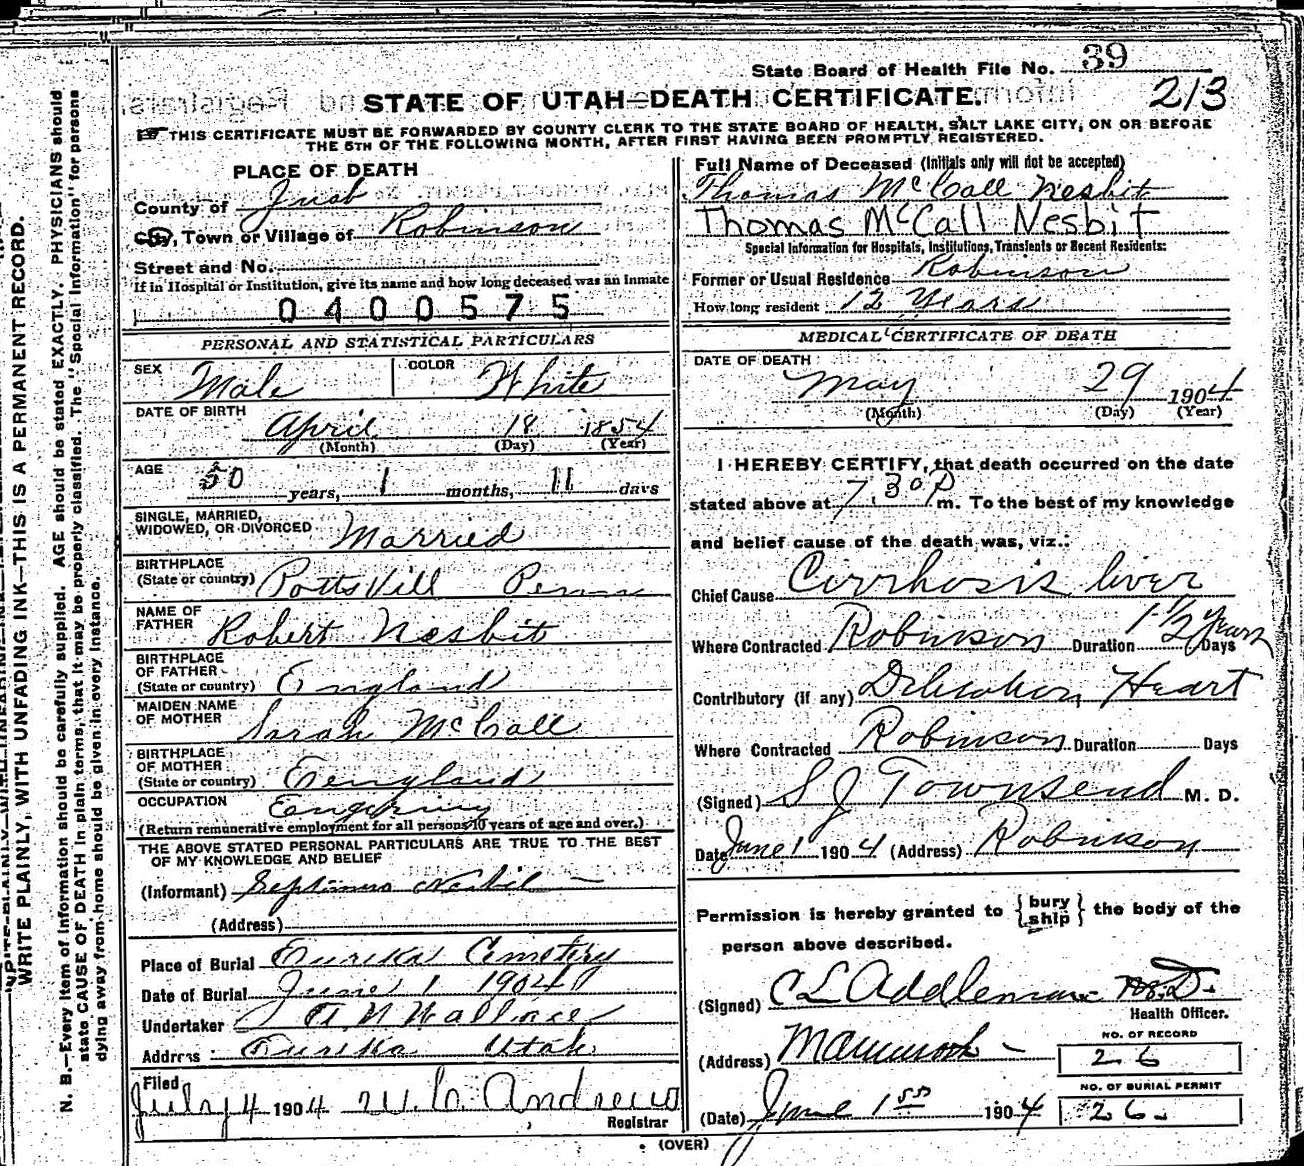 State Board of Health File No. 39
213
STATE OF UTAH—DEATH CERTIFICATE.
THIS CERTIFICATE MUST BE FORWARDED BY COUNTY CLERK TO THE STATE BOARD OF HEALTH, SALT LAKE CITY, ON OR BEFORE
THE 5TH OF THE FOLLOWING MONTH, AFTER FIRST HAVING BEEN PROMPTLY REGISTERED.
PLACE OF DEATH
County of Juab
City, Town or Village of Robinson
Street and No.
If in Hospital or Institution, give its name and how long deceased was an inmate
0400575
PERSONAL AND STATISTICAL PARTICULARS
SEX Male COLOR White
DATE OF BIRTH
April 18 1854
(Month) (Day) (Year)
AGE
50 years, 1 months, 11 days
SINGLE, MARRIED,
WIDOWED, OR DIVORCED Married
BIRTHPLACE
(State or country) Potts Vill Penn
NAME OF
FATHER Robert Nesbit
BIRTHPLACE
OF FATHER
(State or country) England
MAIDEN NAME
OF MOTHER Sarah McCall
BIRTHPLACE
OF MOTHER
(State or country) Eengland
OCCUPATION
(Return remunerative employment for all persons 10 years of age and over.)
THE ABOVE STATED PERSONAL PARTICULARS ARE TRUE TO THE BEST
OF MY KNOWLEDGE AND BELIEF
(Informant) Septimus Nesbit
(Address)
Place of Burial Eureka Cemetery
Date of Burial June 1 1904
Undertaker A. N. Wallace
Address Eureka Utah
Filed
July 4 1904 W. C. Andrews
Registrar
Full Name of Deceased (Initials only will not be accepted)
Thomas McCall Nesbit
Thomas McCall Nesbit
Special Information for Hospitals, Institutions, Transients or Recent Residents:
Former or Usual Residence Robinson
How long resident 12 Years
MEDICAL CERTIFICATE OF DEATH
DATE OF DEATH
May 29 1904
(Month) (Day) (Year)
I HEREBY CERTIFY, that death occurred on the date
stated above at 7.30 P m. To the best of my knowledge
and belief cause of the death was, viz.:
Chief Cause Cirrhosis liver
Where Contracted Robinson Duration 1 1/2 years Days
Contributory (if any) Dilatation Heart
Where Contracted Robinson Duration Days
(Signed) S J Townsend M. D.
Date June 1 1904 (Address) Robinson
Permission is hereby granted to {bury ship} the body of the
person above described.
(Signed) C L Addleman M.D.
Health Officer.
(Address) Mammoth
NO. OF RECORD
26
NO. OF BURIAL PERMIT
26
(Date) June 1st 1904
(OVER)
N. B.—Every item of information should be carefully supplied. AGE should be stated EXACTLY. PHYSICIANS should
state CAUSE OF DEATH in plain terms, that it may be properly classified. The "Special Information" for persons
dying away from home should be given in every instance.
WRITE PLAINLY, WITH UNFADING INK—THIS IS A PERMANENT RECORD.